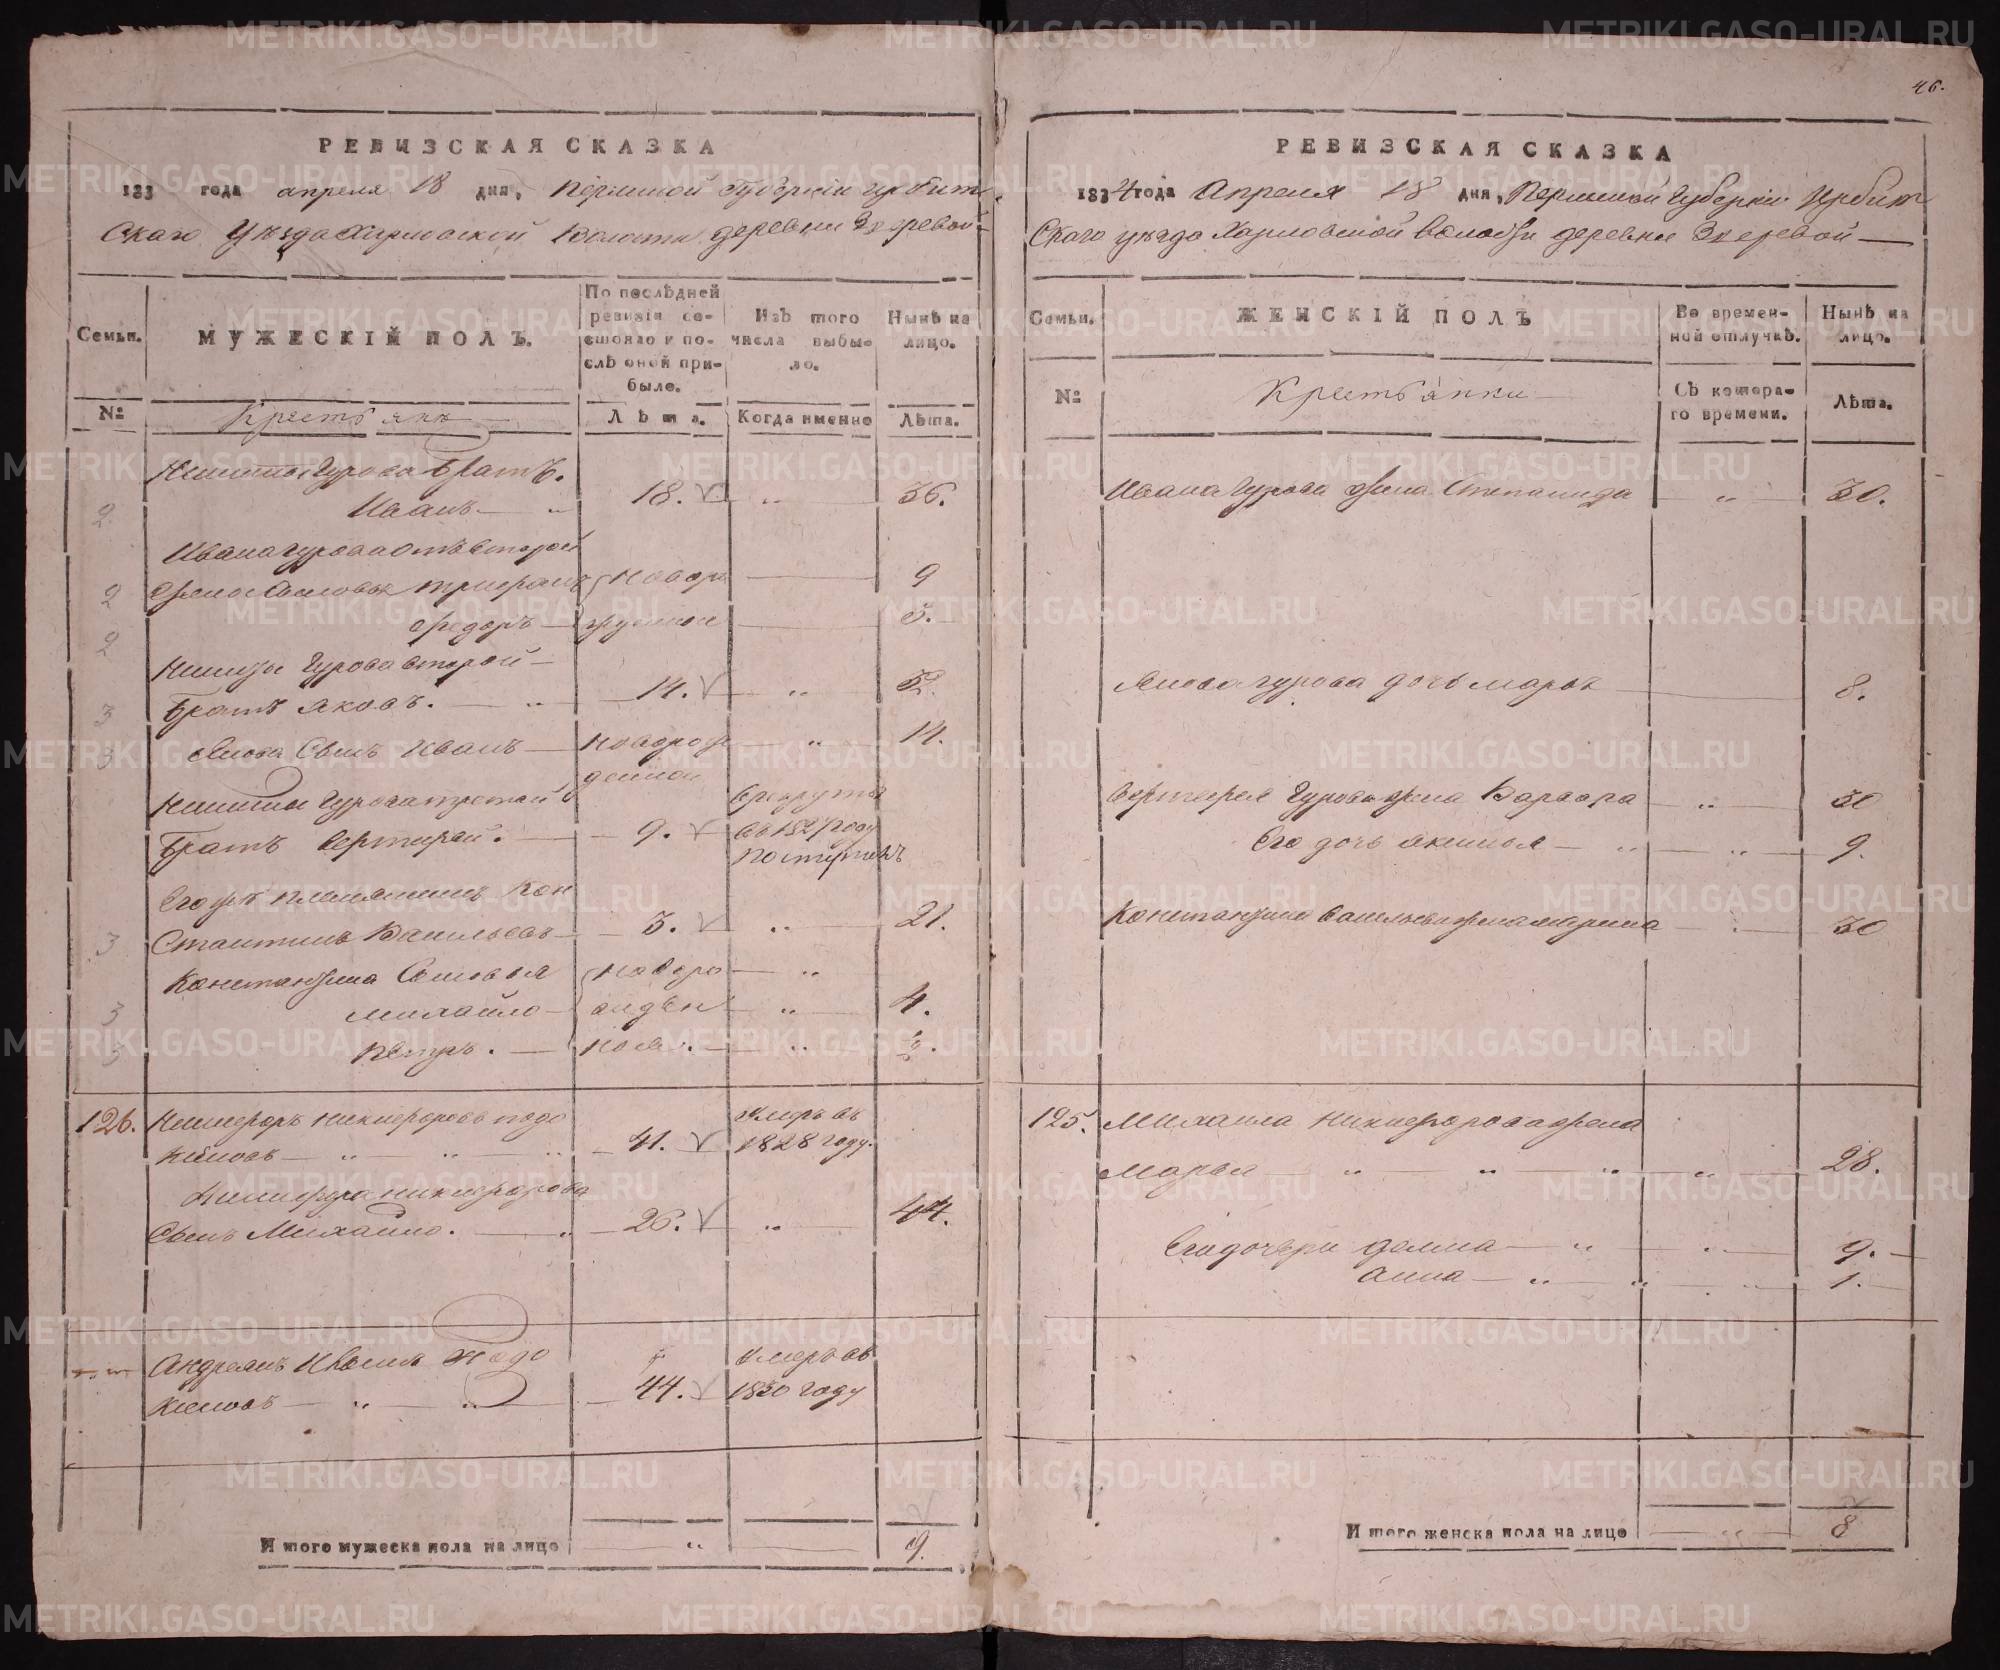 46.
РЕВИЗСКАЯ СКАЗКА
183 года апреля 18 дня, Пермской Губернии Ирбит
скаго Уезда Харловской Волости деревни Зверевой
Семьи.
МУЖЕСКІЙ ПОЛЪ.
По послѣдней ревизіи состояло и послѣ оной прибыло.
Изъ того числа выбыло.
Нынѣ на лицо.
№
Крестьяне
Лѣта.
Когда именно
Лѣта.
Никиты Гурова братъ.
2 Иванъ 18. 36.
Ивана Гурова отъ второй
2 жены сыновья новоро 9
2 Федоръ жденной 5.
Никиты Гурова второй
3 Братъ Яковъ. 14. 32.
3 Якова Сынъ Иванъ новорож 14.
денной
Никиты Гурова третей в рекруты
Братъ 9. въ 1827 году
поступилъ
Егоръ племянникъ Кон
3 стантинъ Васильевъ 3. 21.
Константина Сыновья новоро
3 Михайло жден 4.
3 Петръ. ной. 1/2.
126. Никифоръ Никифоровъ подо Умеръ въ
кшновъ 41. 1828 году.
Никифора Никифорова
Сынъ Михайло. 26. 44.
Андреянъ Ивановъ подо умеръ въ
44. 1830 году
Итого мужеска пола на лицо 9.
РЕВИЗСКАЯ СКАЗКА
1834 года Апреля 18 дня, Пермской Губернии Ирбит
скаго уезда Харловской волости деревни Зверевой
Семьи.
ЖЕНСКІЙ ПОЛЪ
Во временной отлучкѣ.
Нынѣ на лицо.
№
Крестьянки
Съ котораго времени.
Лѣта.
Ивана Гурова жена Степанида 30.
Якова Гурова дочь Марья 8.
Гурова жена Варвара 30
Его дочь Аксинья 9.
Константина Васильева жена Марина 30
125. Михаила Никифорова жена
Марья 28.
Его дочери Домна 9.
Анна 1.
Итого женска пола на лицо 8
METRIKI.GASO-URAL.RU